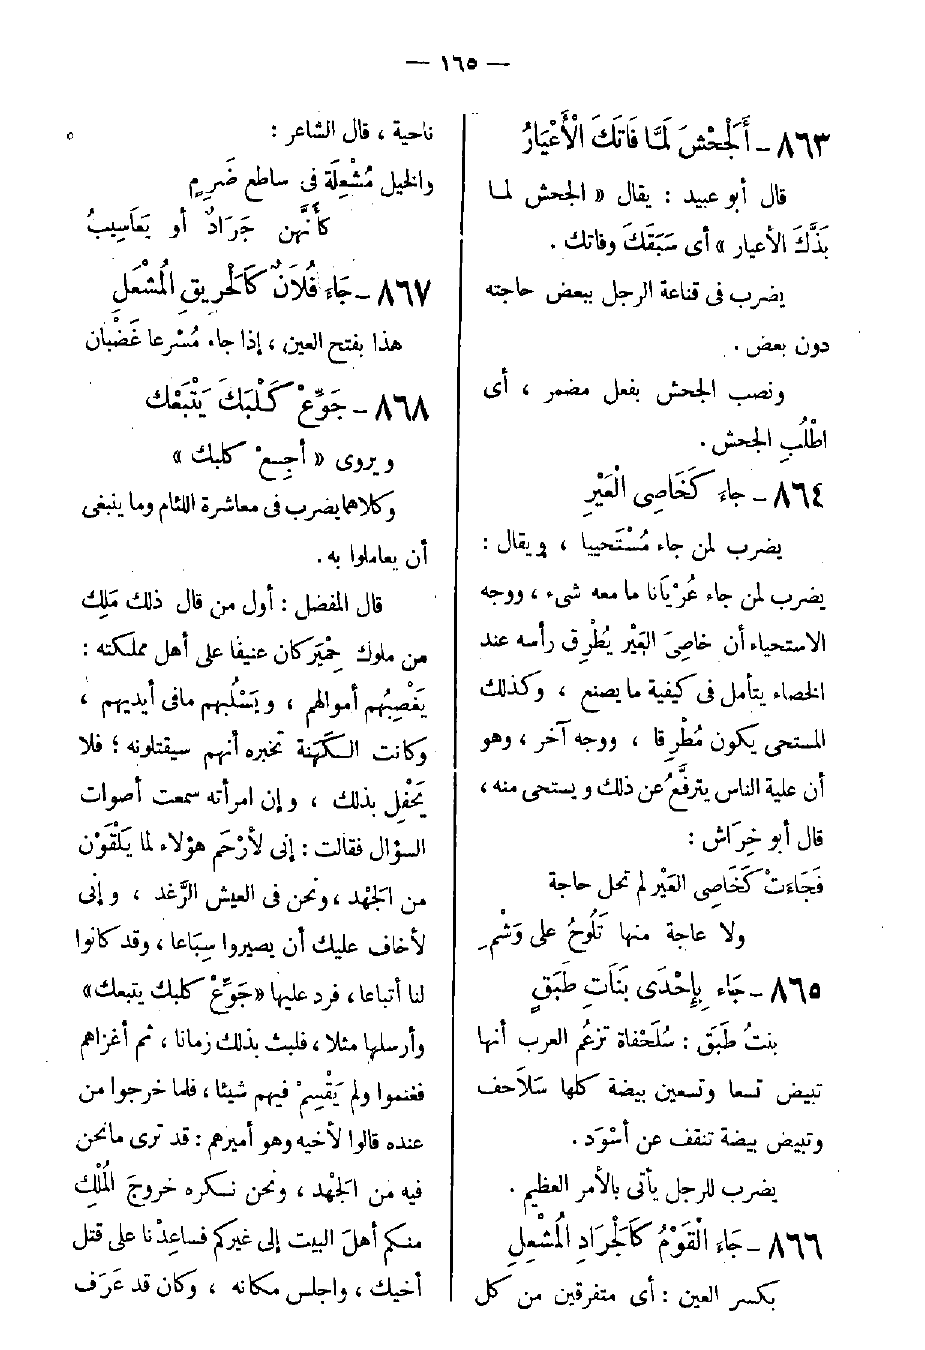 — ١٦٥ —
٨٦٣ - أَلْجَحْشَ لَمَّا فَاتَكَ الْأَعْيَارُ
قال أبو عبيد : يقال « الجحش لما
بَذَّكَ الأعيار » أى سَبَقَكَ وفاتك .
يضرب فى قناعة الرجل ببعض حاجته
دون بعض .
ونصب الجحش بفعل مضمر ، أى
اطْلُبِ الجحش .
٨٦٤ - جاء كَخَاصِى الْعَيْرِ
يضرب لمن جاء مُسْتَحييا ، ويقال :
يضرب لمن جاء عُرْيَانا ما معه شىء ، ووجه
الاستحياء أن خاصِىَ العَيْر يُطْرِق رأسه عند
الخصاء يتأمل فى كيفية ما يصنع ، وكذلك
المستحى يكون مُطْرِقا ، ووجه آخر ، وهو
أن علية الناس يترفَّعُ عن ذلك ويستحى منه ،
قال أبو خِرَاش :
فَجَاءَتْ كَخَاصِى العَيْر لم تحل حاجة
ولا عاجة منها تَلُوحُ على وَشْمِ
٨٦٥ - جَاء بِإِحْدَى بَنَاتِ طَبَقٍ
بنتُ طَبَق : سُلَحْفاة تزعُم العرب أنها
تبيض تسعا وتسعين بيضة كلها سَلاَحف
وتبيض بيضة تنقف عن أسْوَد .
يضرب للرجل يأتى بالأمر العظيم .
٨٦٦ - جَاءَ الْقَوْمُ كَالْجَرَادِ الْمُشْعِلِ
بكسر العين : أى متفرقين من كل
ناحية ، قال الشاعر :
والخيل مُشْعِلَة فى ساطع ضَرِمٍ
كأنَّهن جَرَادٌ أو يَعَاسِيبُ
٨٦٧ - جَاءَ فُلاَنٌ كَالْحَرِيقِ الْمُشْعَلِ
هذا بفتح العين ، إذا جاء مُسْرعا غَضْبان
٨٦٨ - جَوِّعْ كَلْبَكَ يَتْبَعْك
ويروى « أجِعْ كلبك »
وكلاهما يضرب فى معاشرة اللئام وما ينبغى
أن يعاملوا به .
قال المفضل : أول من قال ذلك مَلِك
من ملوك حِمْيَر كان عنيفا على أهل مملكته :
يَغْصِبُهم أموالهم ، ويَسْلُبهم مافى أيديهم ،
وكانت الكَهَنة تخبره أنهم سيقتلونه ؛ فلا
يَحْفِل بذلك ، وإن امرأته سمعت أصوات
السؤال فقالت : إنى لأرْحَم هؤلاء لما يَلْقَوْن
من الجَهْد ، ونحن فى العيش الرَّغد ، وإنى
لأخاف عليك أن يصيروا سِبَاعا ، وقد كانوا
لنا أتباعا ، فرد عليها «جَوِّعْ كلبك يتبعك»
وأرسلها مثلا ، فلبث بذلك زمانا ، ثم أغزاهم
فغنموا ولم يَقْسِمْ فيهم شيئا ، فلما خرجوا من
عنده قالوا لأخيه وهو أميرهم : قد ترى مانحن
فيه من الجَهْد ، ونحن نكره خروجَ المُلْكِ
منكم أهلَ البيت إلى غيركم فساعِدْنا على قتل
أخيك ، واجلس مكانه ، وكان قد عَرَف